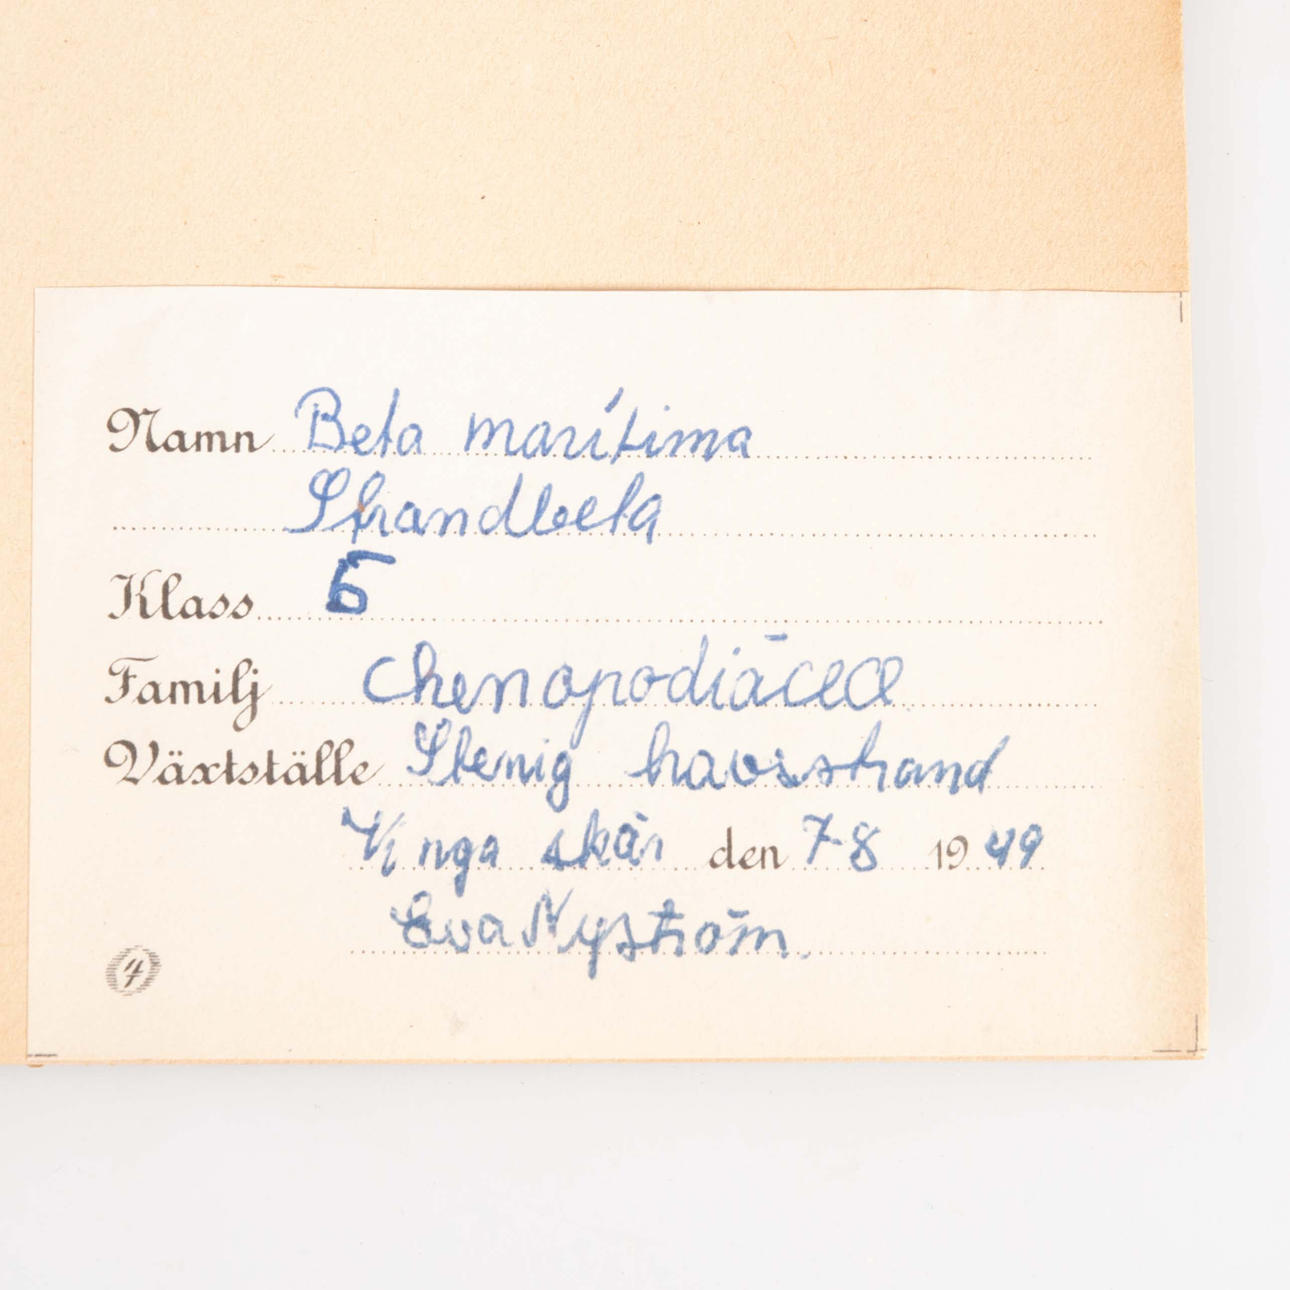 Namn Beta marítima
Strandbeta
Klass 5
Familj Chenopodiāceæ
Växtställe Stenig havsstrand
Vinga skär den 7-8 1949
Eva Nyström.